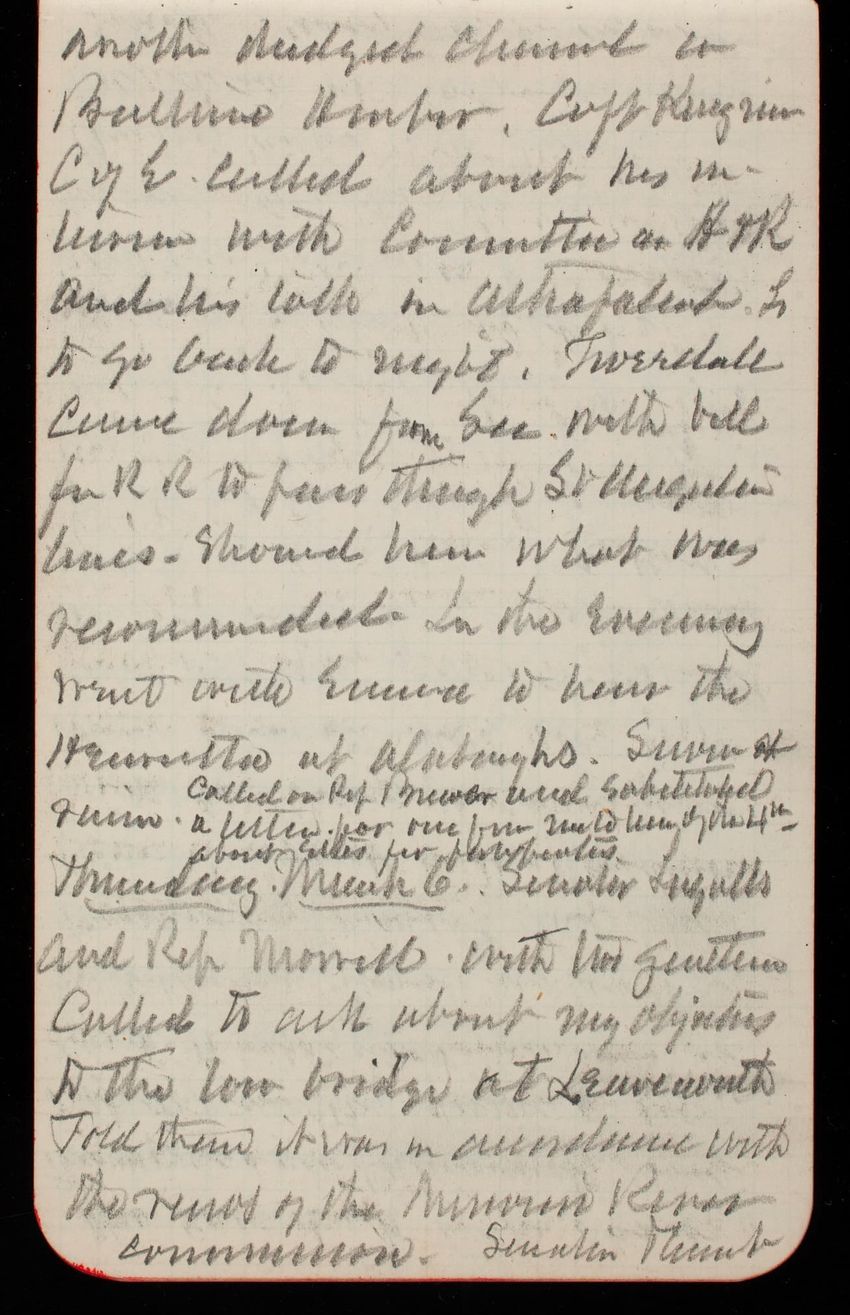 another dredged channel in
Baltimore Harbor. Capt
C of E. called about his in-
terview with Committee on R & H
and his talk in
to go back to night. Tweedale
came down from Sec. with bill
for R R to pass through St Augustine
lines. Showed him what was
recommended. In the evening
went with Emma to hear the
Henrietta at Albaughs. Snow &
rain. Called on Rep Brewer and substituted
a letter for one from me to him of the 4th
about sites for
Thursday. March 6. Senator Ingalls
and Rep Morrill with two gentlemen
Called to ask about my objections
to the low bridge at Leavenworth
Told them it was in accordance with
the views of the Missouri River
commission. Senator Plumb